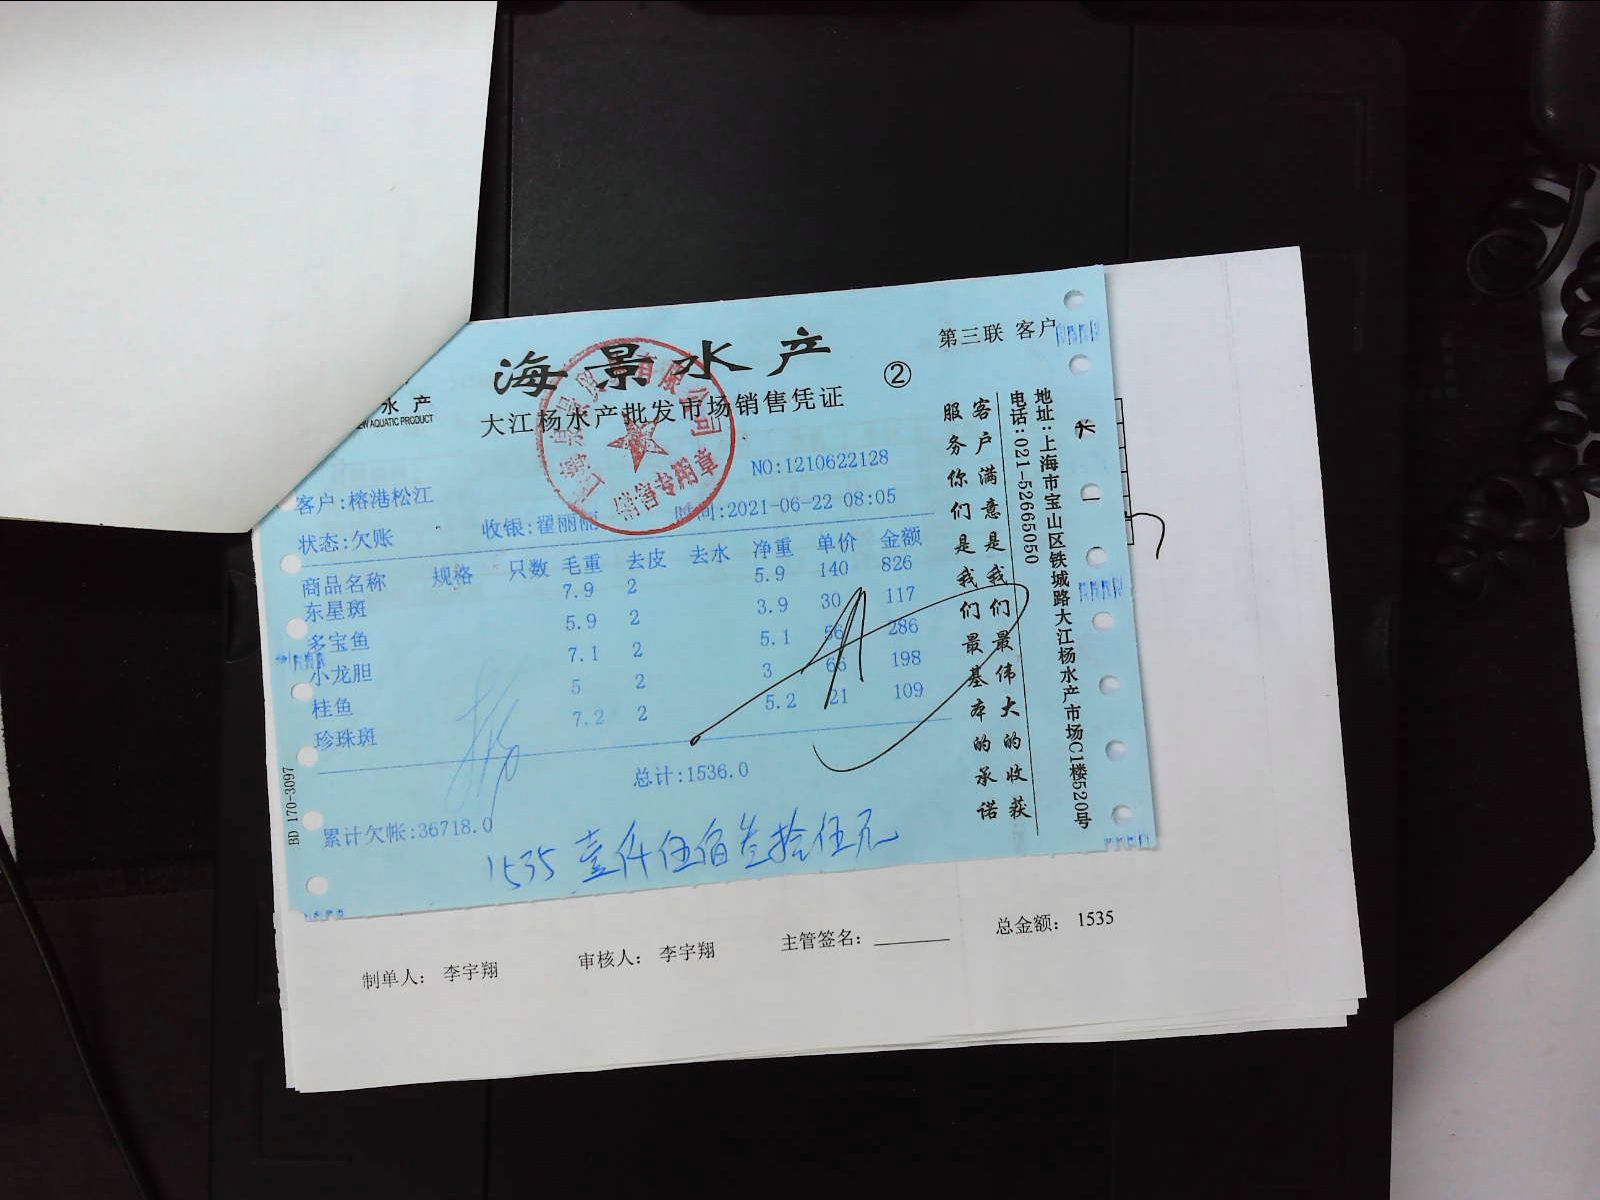 海景水产
水产
EW AQUATIC PRODUCT
大江杨水产批发市场销售凭证
②
第三联 客户
NO:1210622128
客户:榕港松江
状态:欠账 收银:翟丽丽 时间:2021-06-22 08:05
商品名称 规格 只数 毛重 去皮 去水 净重 单价 金额
东星斑 7.9 2 5.9 140 826
多宝鱼 5.9 2 3.9 30 117
小龙胆 7.1 2 5.1 56 286
桂鱼 5 2 3 66 198
珍珠斑 7.2 2 5.2 21 109
总计:1536.0
累计欠帐:36718.0
1535 壹仟伍佰叁拾伍元
BD 170-3097
客户满意是我们最伟大的收获
服务你们是我们最基本的承诺
地址:上海市宝山区铁城路大江杨水产市场C1楼520号
电话:021-52665050
销售专用章
制单人: 李宇翔 审核人: 李宇翔 主管签名: 总金额: 1535